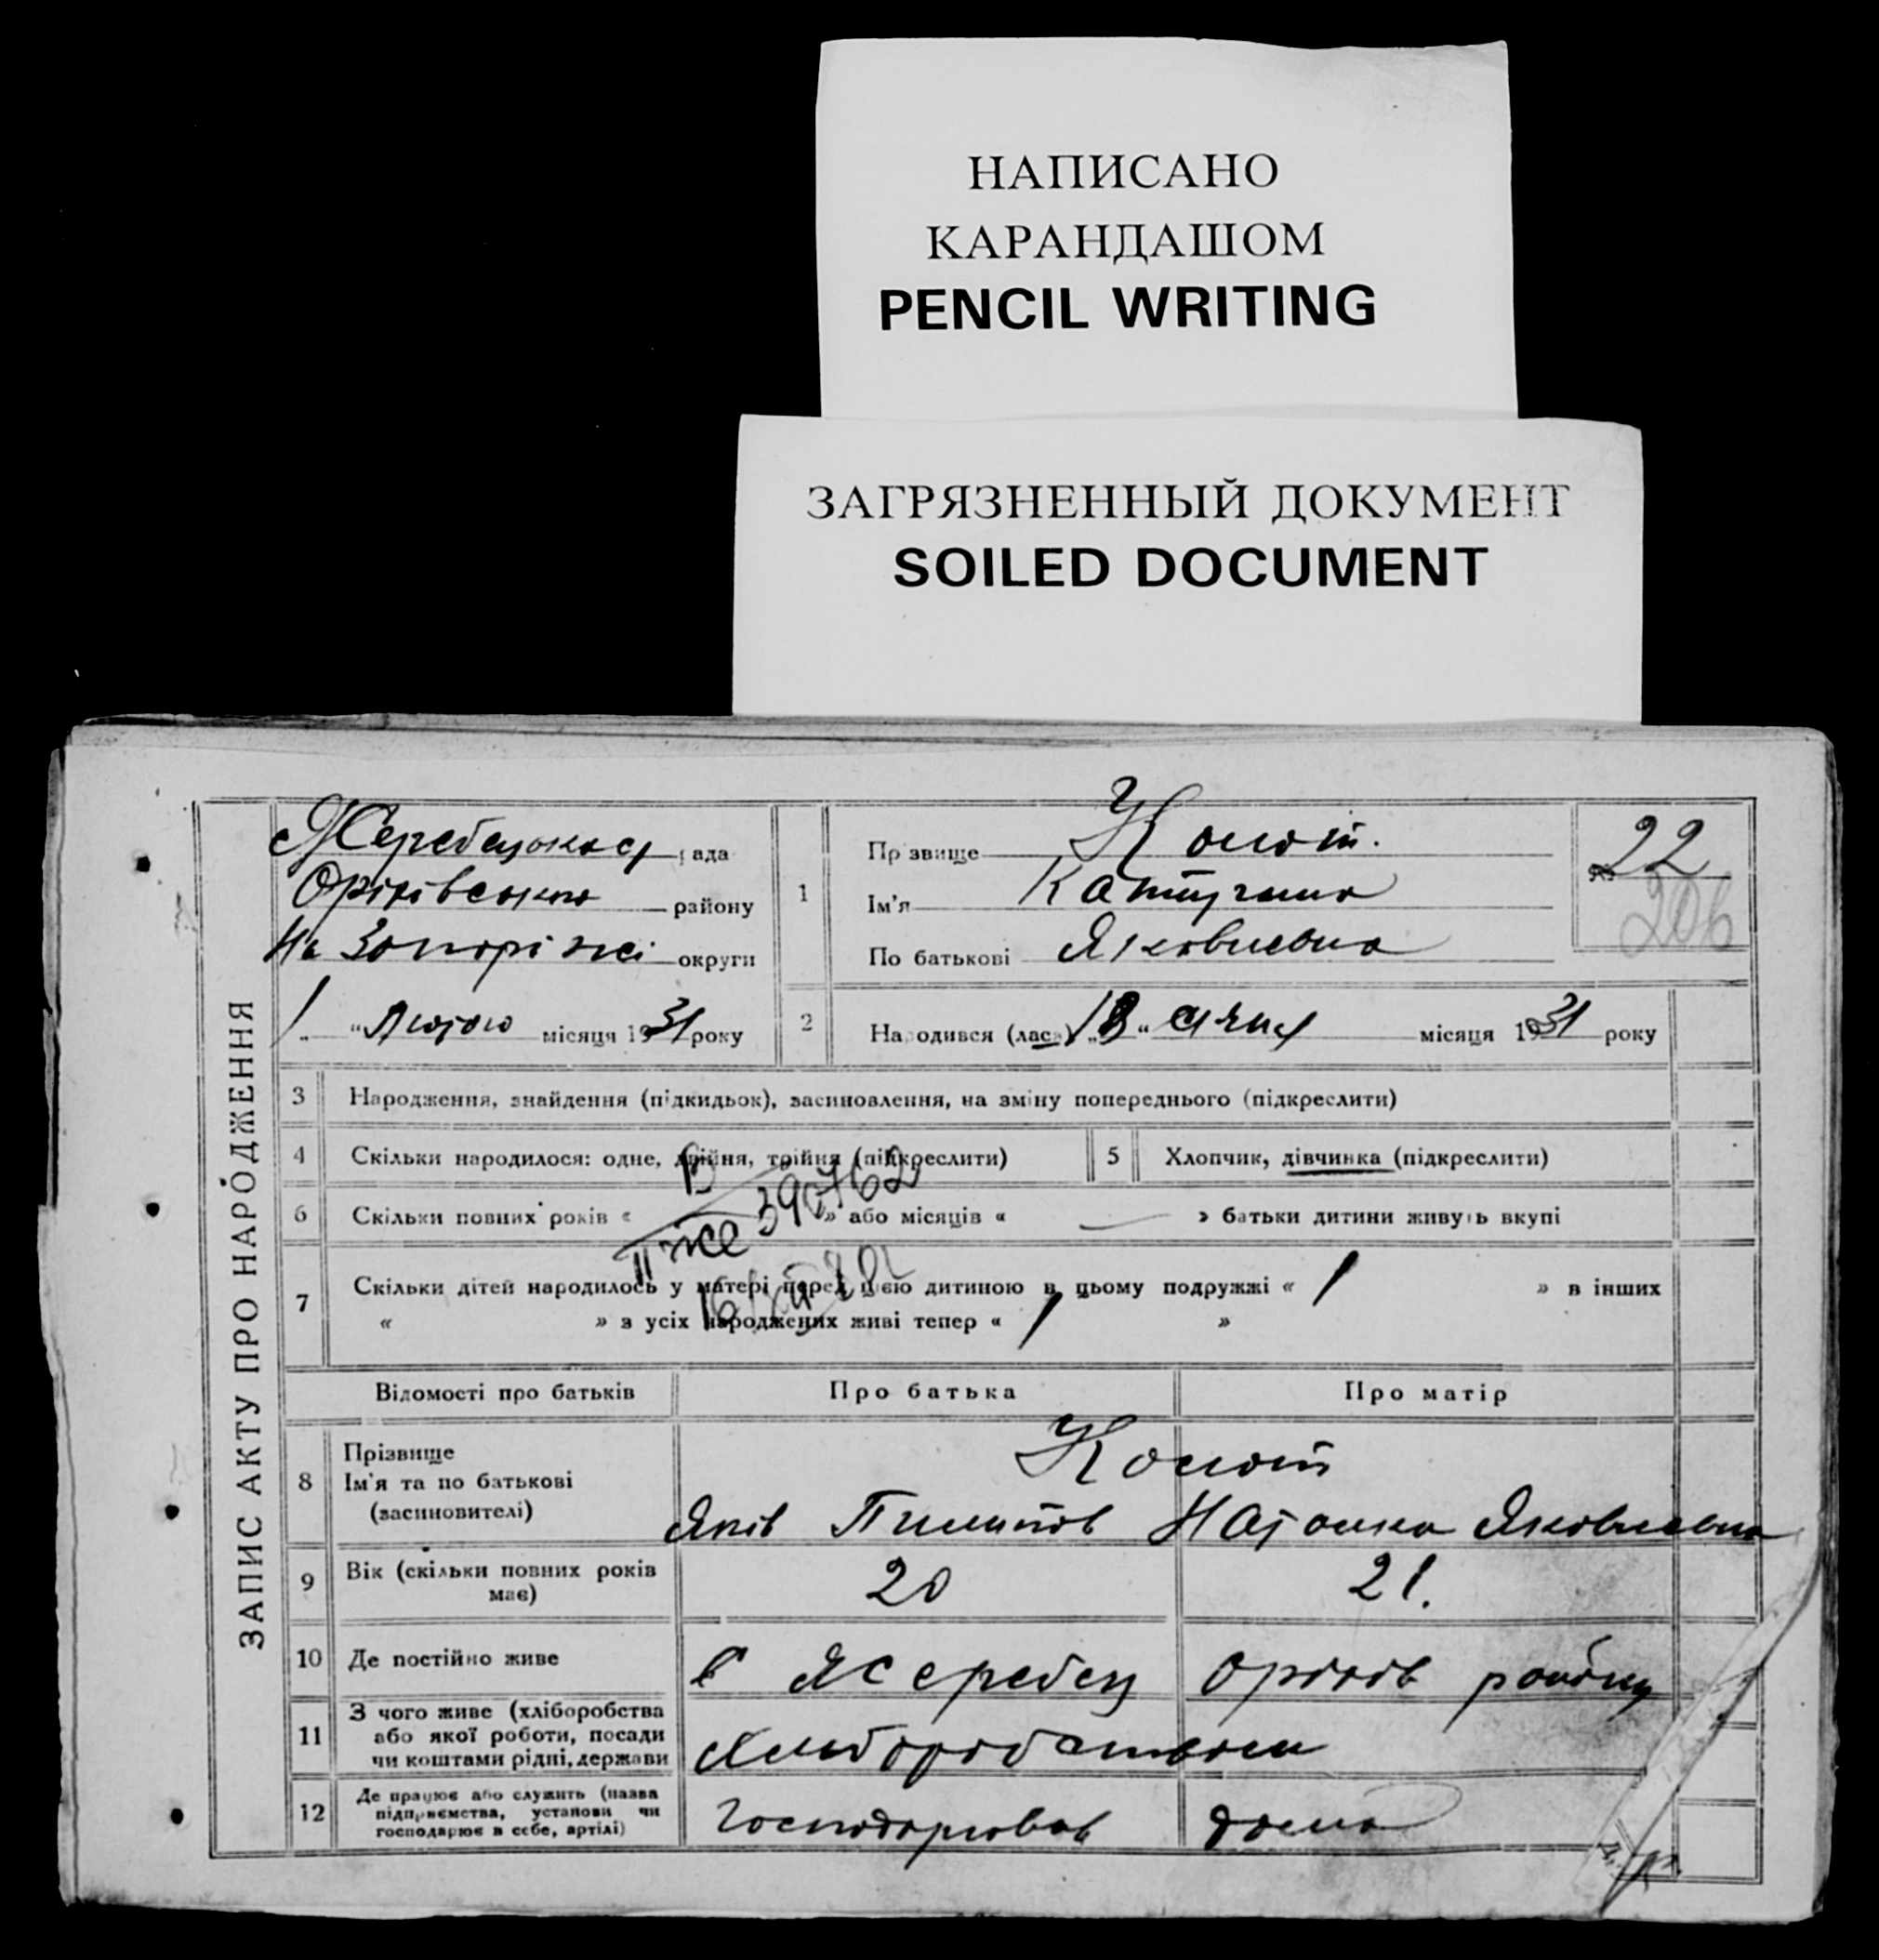 НАПИСАНО
КАРАНДАШОМ
PENCIL WRITING
ЗАГРЯЗНЕННЫЙ ДОКУМЕНТ
SOILED DOCUMENT
ЗАПИС АКТУ ПРО НАРОДЖЕННЯ
Жеребецька рада
Оріхівського району
На Запоріжжі округи
1 „ “ Лютого місяця 1931 року
1 Прізвище
Ім'я Катерина
По батькові Яковлевна
№ 22
206
2 Народився (лася) „ “ січня місяця 1931 року
3 Народження, знайдення (підкидьок), засиновлення, на зміну попереднього (підкреслити)
4 Скільки народилося: одне, двійня, трійня (підкреслити)
5 Хлопчик, дівчинка (підкреслити)
6 Скільки повних років « » або місяців « — » батьки дитини живуть вкупі
7 Скільки дітей народилось у матері перед цією дитиною в цьому подружжі « 1 » в інших
« » з усіх народжених живі тепер « 1 »
Відомості про батьків Про батька Про матір
8 Прізвище
Ім'я та по батькові
(засиновителі)
Яків Пилипов Наталка Яковлевна
9 Вік (скільки повних років
має) 20 21.
10 Де постійно живе с Жеребец Оріхів району
11 З чого живе (хліборобства
або якої роботи, посади
чи коштами рідні, держави Хліборобством
12 Де працює або служить (назва
підприємства, установи чи
господарює в себе, артілі) дома